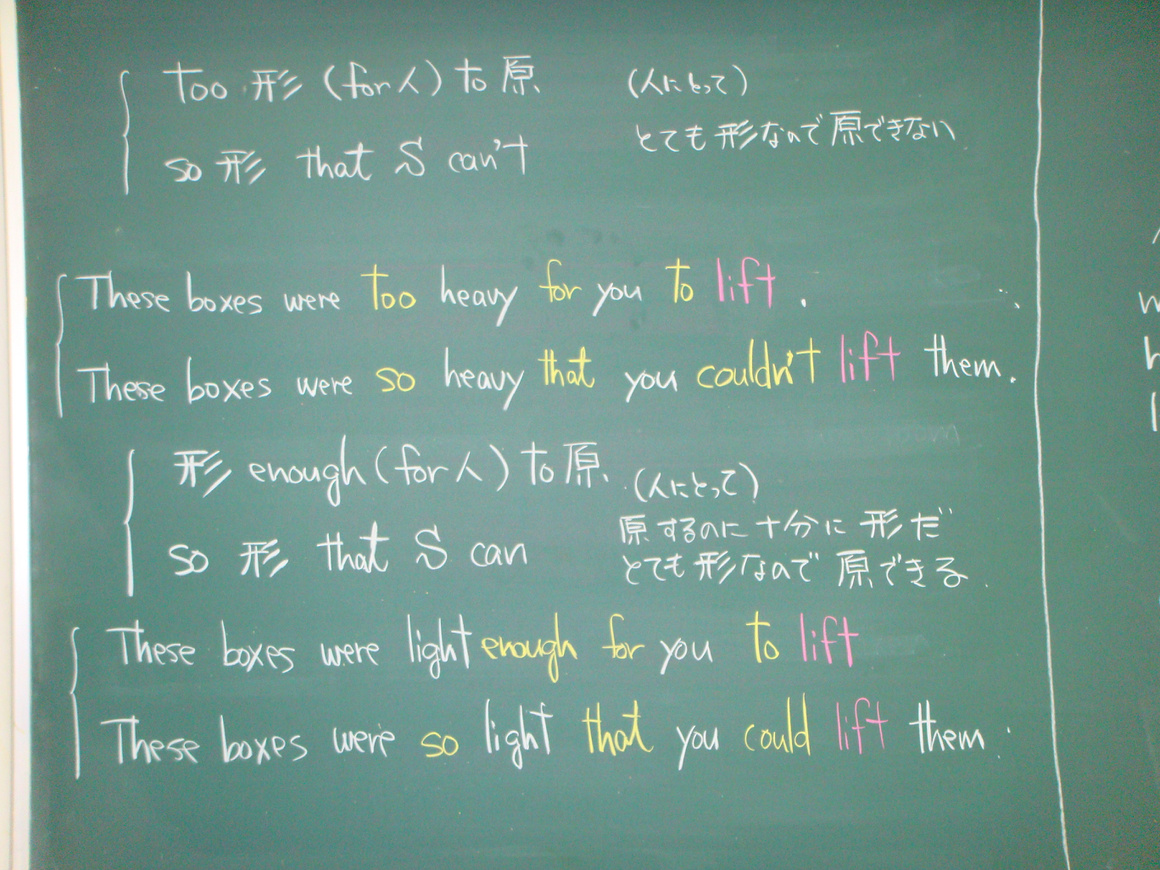 too 形 (for 人) to 原.
(人にとって)
とても形なので原できない
so 形 that S can't
These boxes were too heavy for you to lift.
These boxes were so heavy that you couldn't lift them.
形 enough (for 人) to 原.
(人にとって)
原するのに十分に形だ
so 形 that S can
とても形なので原できる
These boxes were light enough for you to lift
These boxes were so light that you could lift them.